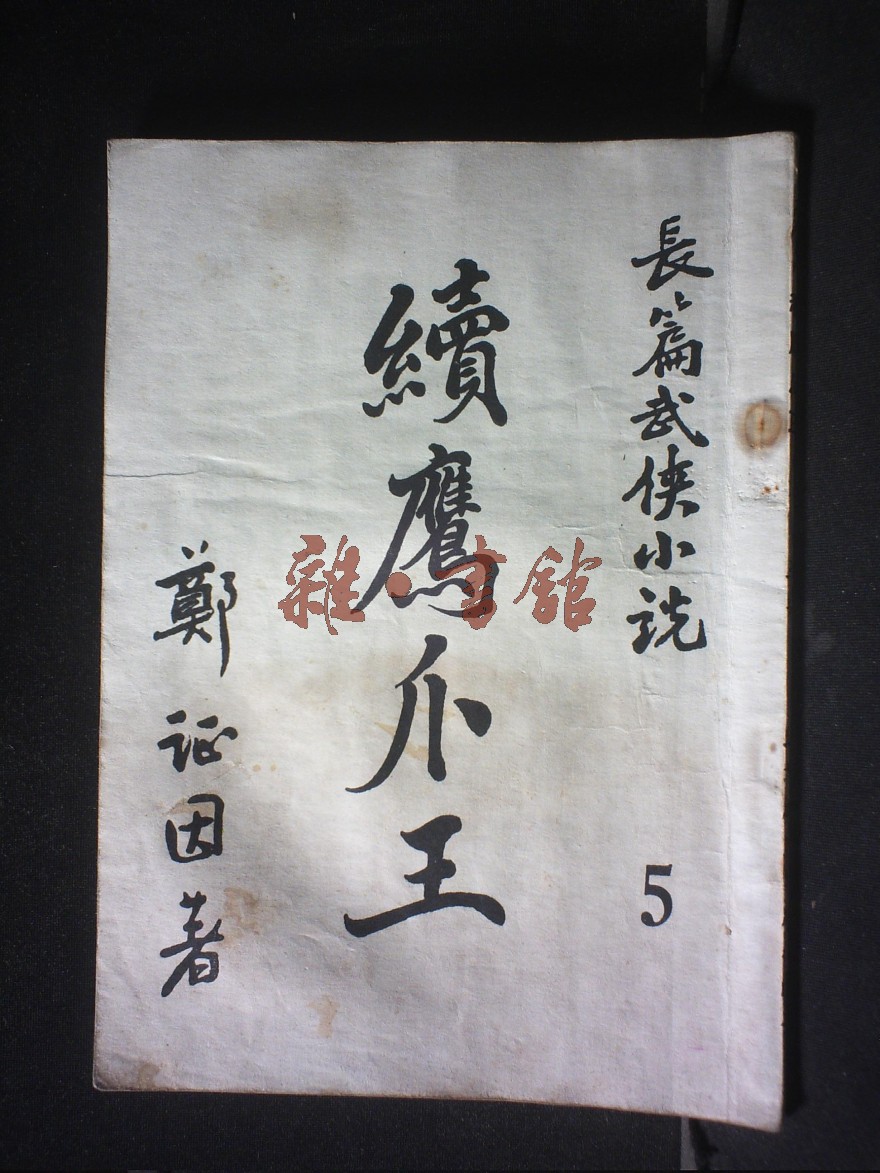 長篇武俠小說
5
續鷹爪王
鄭証因著
雜·書館